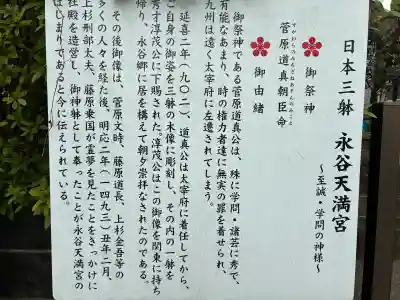 日本三躰 永谷天満宮
～至誠・学問の神様～
御祭神
すがわらのみちざねあそんのみこと
菅原道真朝臣命
御由緒
御祭神である菅原道真公は、殊に学問・諸芸に秀で、
有能なあまり、時の権力者達に無実の罪を着せられ、
九州は遠く太宰府に左遷されてしまう。
延喜二年(九〇二)、道真公は太宰府に着任してから、
ご自身の御姿を三躰の木像に彫刻し、その内の一躰を
秀才淳茂公に下賜された。淳茂公はこの御像を関東に持ち
帰り、永谷郷に居を構えて朝夕崇拝なされたのである。
その後御像は、菅原文時、藤原道長、上杉金吾等の
多くの人々を経た後、明応二年(一四九三)丑年二月、
上杉刑部大夫、藤原乗国が霊夢を見たことをきっかけに
社殿を造営し、御神躰として奉ったことが永谷天満宮の
はじまりであると今に伝えられている。